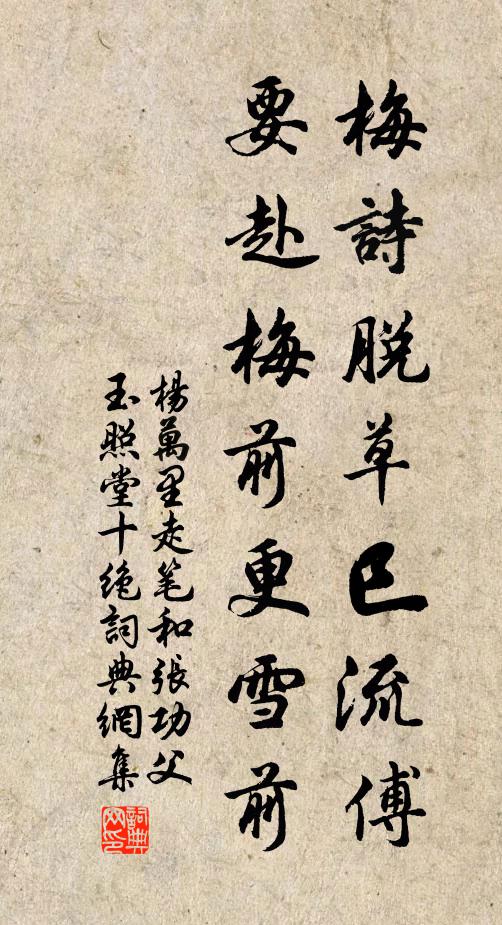 梅詩脫草已流傳
要赴梅前更雪前
楊萬里走笔和張功父
玉照堂十絶詞典網集
詞典网印